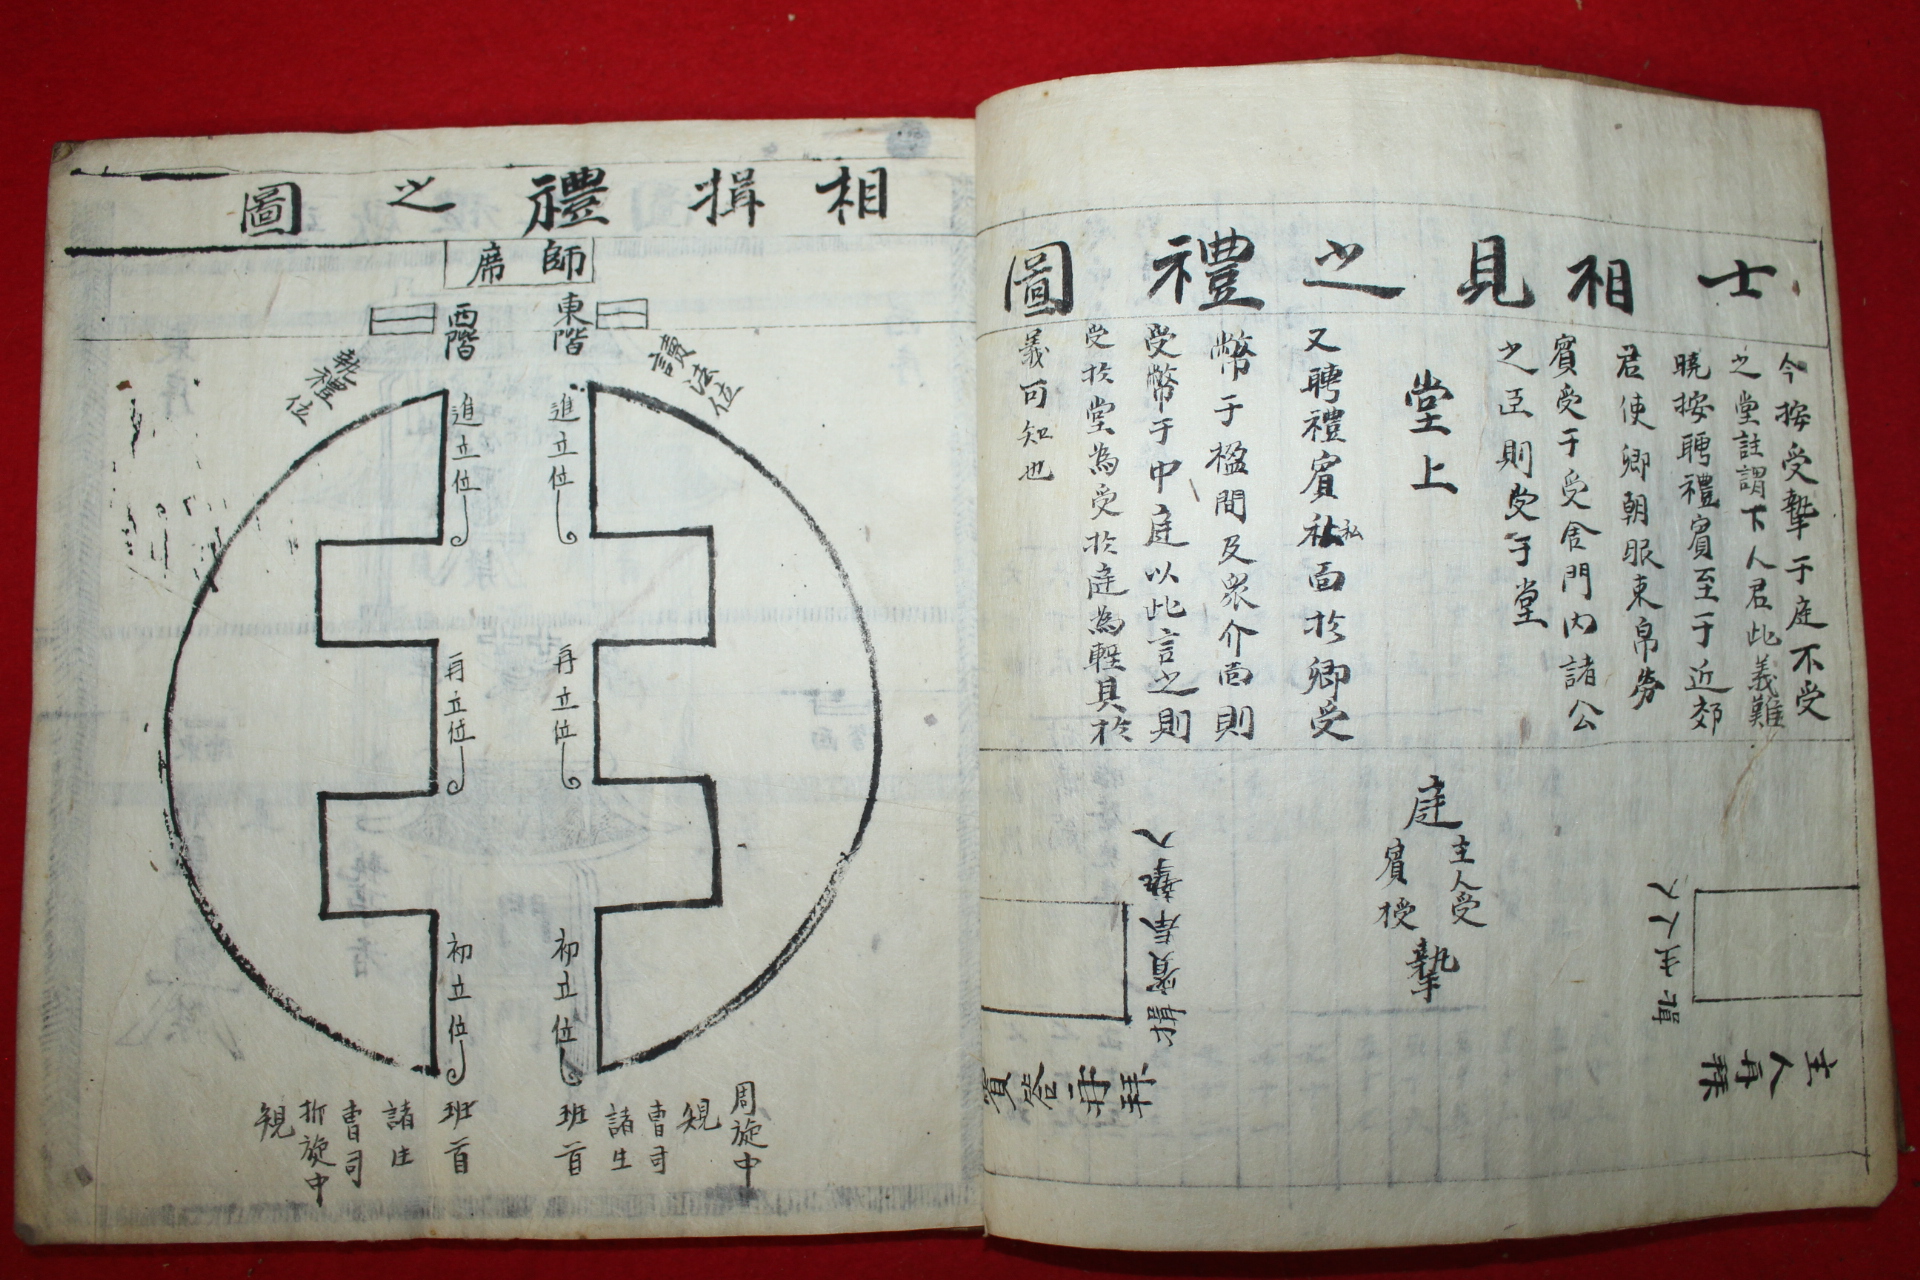 士相見之禮圖
今按受摯于庭不受
之堂註謂下人君此義難
曉按聘禮賓至于近郊
君使卿朝服束帛勞
賓受于受舍門內諸公
之臣則受于堂
堂上
又聘禮賓私面於卿受
私
幣于楹間及衆介面則
受幣于中庭以此言之則
受於堂為受於庭為輕具於
義可知也
庭
主人受
賓授
摯
揖主人入
主人再拜
揖賓奉摯入
賓答再拜
相揖禮之圖
師席
東階
西階
讀法位
執禮位
進立位
進立位
再立位
再立位
初立位
初立位
周旋中
規
曹司
諸生
班首
班首
諸生
曹司
折旋中
規